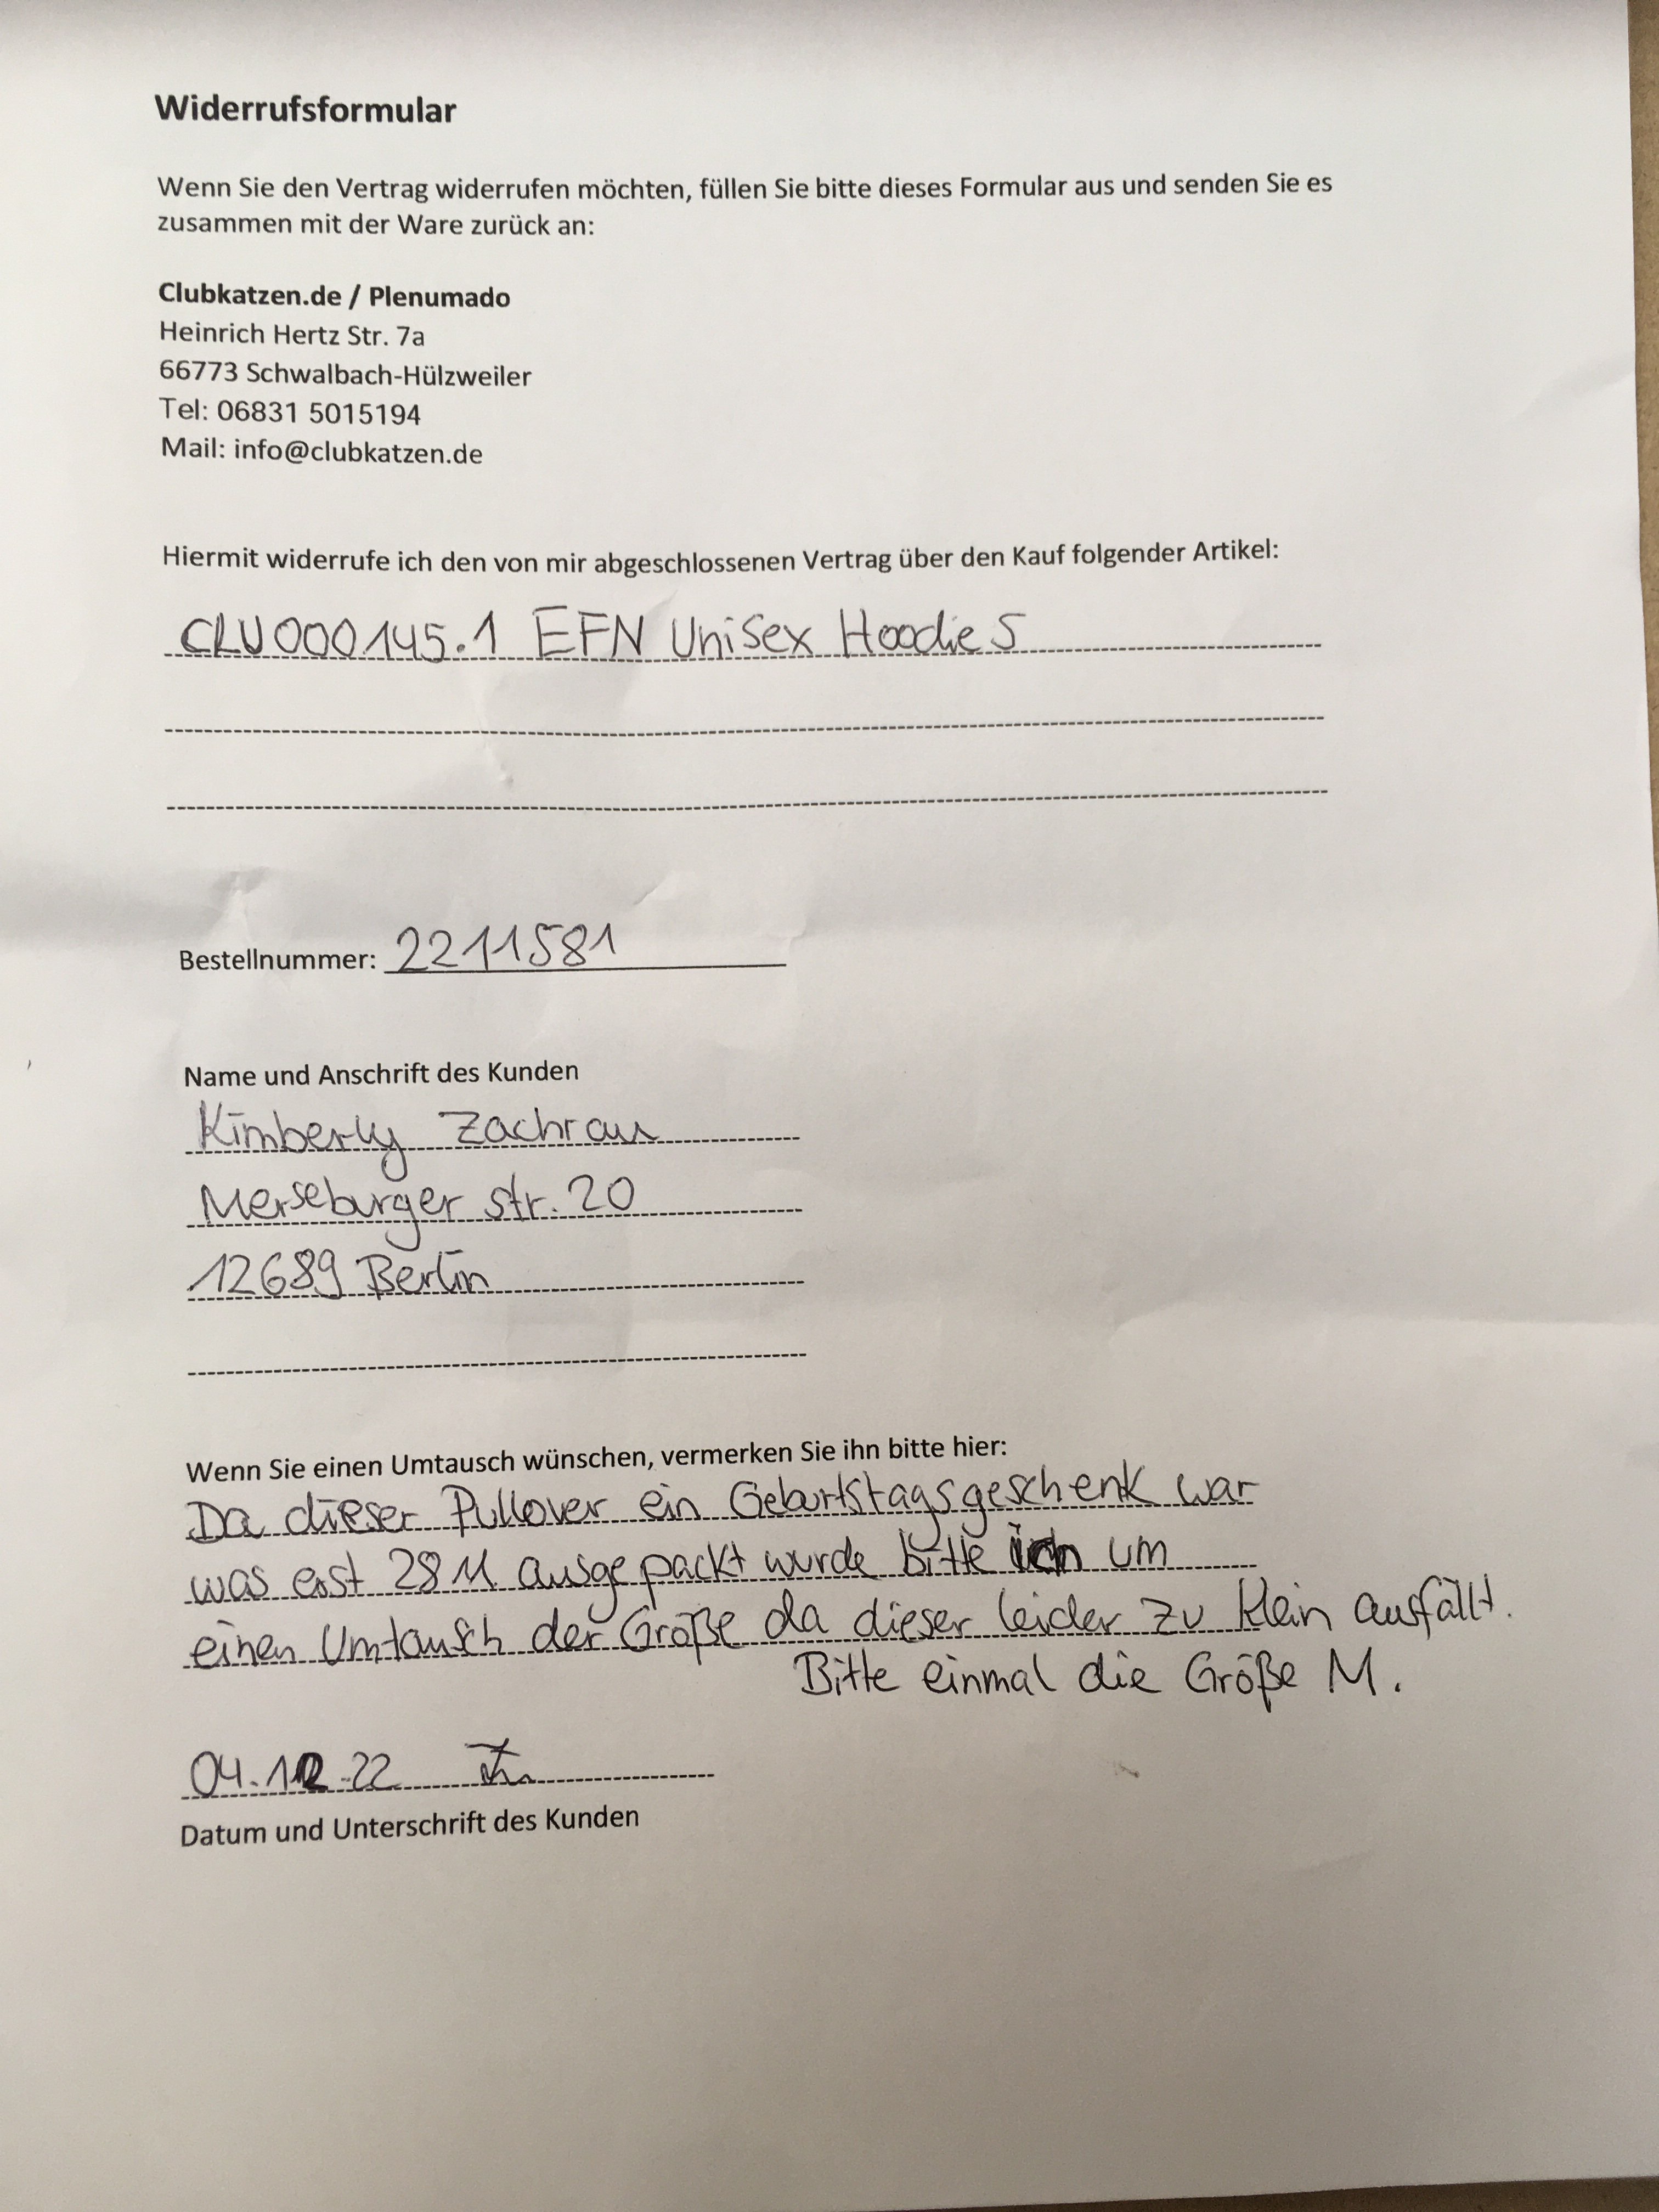 Widerrufsformular
Wenn Sie den Vertrag widerrufen möchten, füllen Sie bitte dieses Formular aus und senden Sie es
zusammen mit der Ware zurück an:
Clubkatzen.de / Plenumado
Heinrich Hertz Str. 7a
66773 Schwalbach-Hülzweiler
Tel: 06831 5015194
Mail: info@clubkatzen.de
Hiermit widerrufe ich den von mir abgeschlossenen Vertrag über den Kauf folgender Artikel:
CLU000145.1 EFN Unisex Hoodie S
Bestellnummer: 2211581
Name und Anschrift des Kunden
Kimberly Zachrau
Merseburger str. 20
12689 Berlin
Wenn Sie einen Umtausch wünschen, vermerken Sie ihn bitte hier:
Da dieser Pullover ein Geburtstagsgeschenk war
was erst 28 11 ausgepackt wurde bitte ich um
einen Umtausch der Größe da dieser leider zu klein ausfällt.
Bitte einmal die Größe M.
04.12.22
Datum und Unterschrift des Kunden